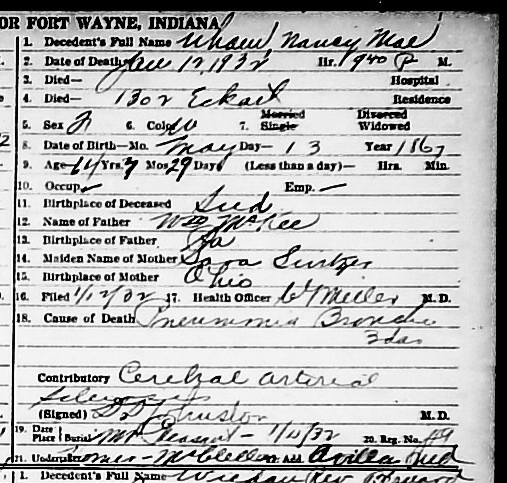 OR FORT WAYNE, INDIANA
1. Decedent's Full Name Whaw, Nancy Mae
2. Date of Death Jan 12, 1932 Hr. 9 40 P M.
3. Died— Hospital
4. Died— 1302 Eckart Residence
5. Sex F 6. Color W 7. Married Single Divorced Widowed
8. Date of Birth—Mo. May Day— 13 Year 1867
9. Age 64 Yrs. 7 Mos 29 Days (Less than a day)— Hrs. Min.
10. Occup. Emp. —
11. Birthplace of Deceased Ind
12. Name of Father Wm McKee
13. Birthplace of Father Pa
14. Maiden Name of Mother Sara
15. Birthplace of Mother Ohio
16. Filed 1/12/32 17. Health Officer Miller M. D.
18. Cause of Death Pneumonia Broncho
3 das
Contributory Cerebral arterial
(Signed) Johnston M. D.
19. Date Place Burial Mt Pleasant — 1/15/32 20. Reg. No. 49
21. Undertaker McClellan 22. Add. Avilla Ind
1. Decedent's Full Name Rev